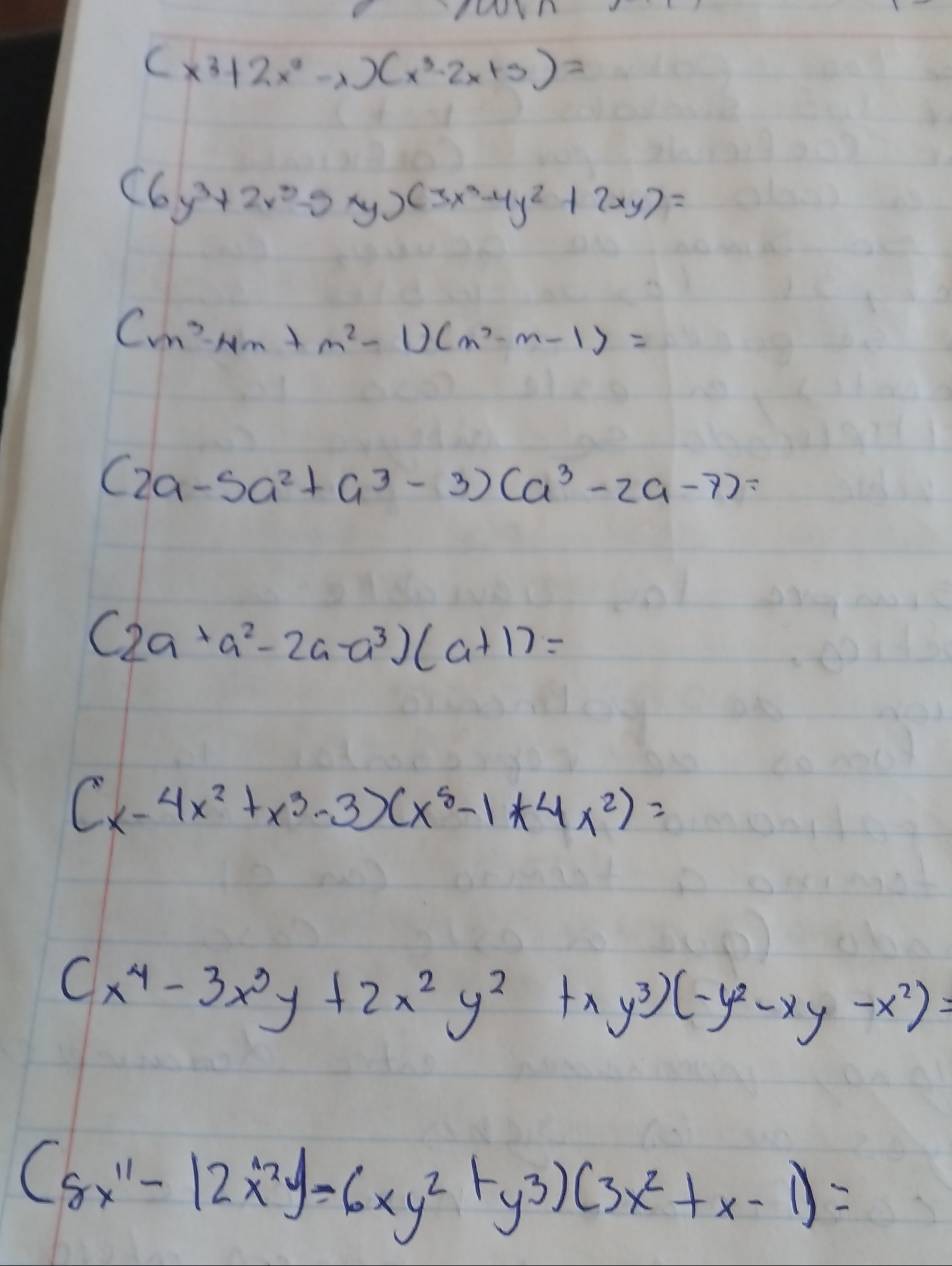 (x³+2x² -x)(x²-2x+5)=
(6y³+2x²-5xy)(3x³-4y²+2xy)=
(m³-4m+m²-1)(m³-m-1)=
(2a-5a²+a³-3)(a³-2a-7)=
(2a+a²-2a-a³)(a+1)=
(x-4x²+x³-3)(x⁵-1+4x²)=
(x⁴-3x³y+2x²y² +xy³)(-y²-xy-x²)=
(5x¹¹-12x²y-6xy²+y³)(3x²+x-1)=